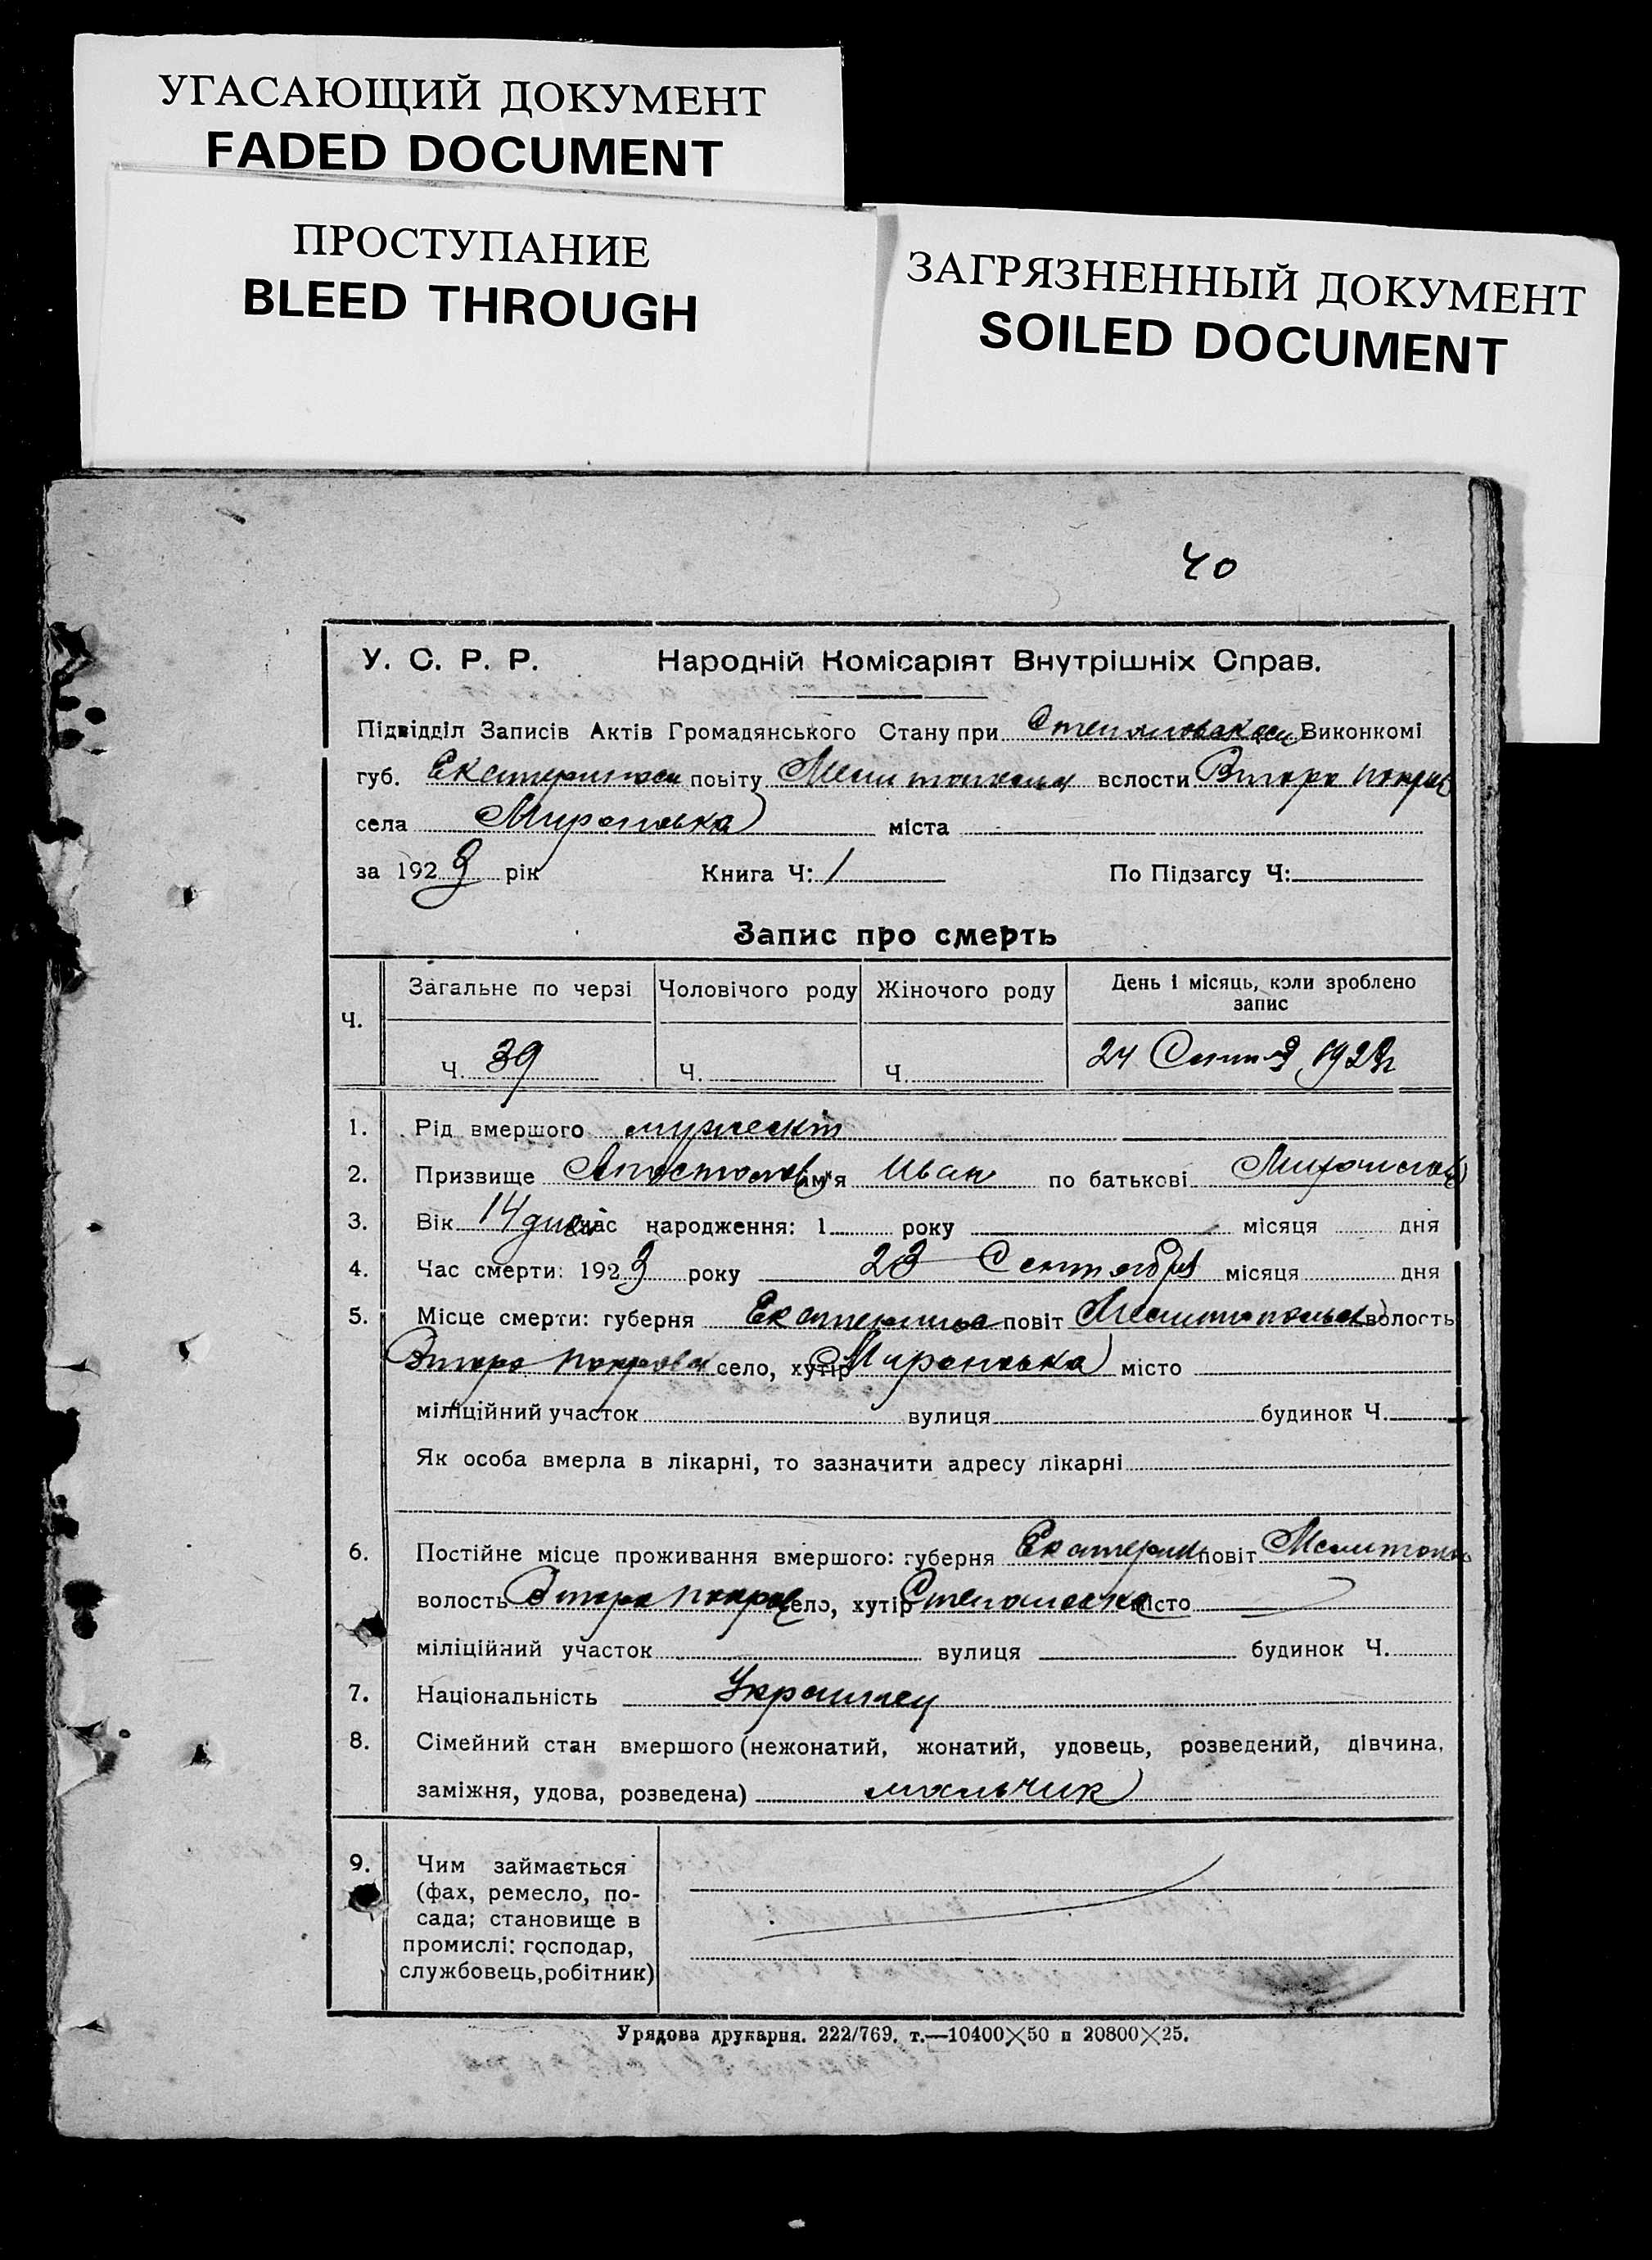 УГАСАЮЩИЙ ДОКУМЕНТ
FADED DOCUMENT
ПРОСТУПАНИЕ
BLEED THROUGH
ЗАГРЯЗНЕННЫЙ ДОКУМЕНТ
SOILED DOCUMENT
40
У. С. Р. Р. Народній Комісаріят Внутрішніх Справ.
Підвідділ Записів Актів Громадянського Стану при Виконкомі
губ. повіту вслости Второ покров
села Мироновка міста
за 1923 рік Книга Ч: 1 По Підзагсу Ч:
Запис про смерть
Ч. Загальне по черзі Чоловічого роду Жіночого роду День і місяць, коли зроблено запис
Ч. 39 Ч. Ч. 24 1923г
1. Рід вмершого мужескій
2. Призвище Апостолов им'я Иван по батькові
3. Вік 14 дней час народження: 1 року місяця дня
4. Час смерти: 1923 року 23 Сентября місяця дня
5. Місце смерти: губерня повіт Мелитопольск волость
Второ покровск село, хутір Мироновка місто
міліційний участок вулиця будинок Ч.
Як особа вмерла в лікарні, то зазначити адресу лікарні
6. Постійне місце проживання вмершого: губерня Екатерин повіт Мелитополь
волость Второ покров село, хутір Степановка місто
міліційний участок вулиця будинок Ч.
7. Національність Украинец
8. Сімейний стан вмершого (нежонатий, жонатий, удовець, розведений, дівчина,
заміжня, удова, розведена) мальчик
9. Чим займається
(фах, ремесло, по-
сада; становище в
промислі: господар,
службовець, робітник)
Урядова друкарня. 222/769. т.—10400×50 п 20800×25.